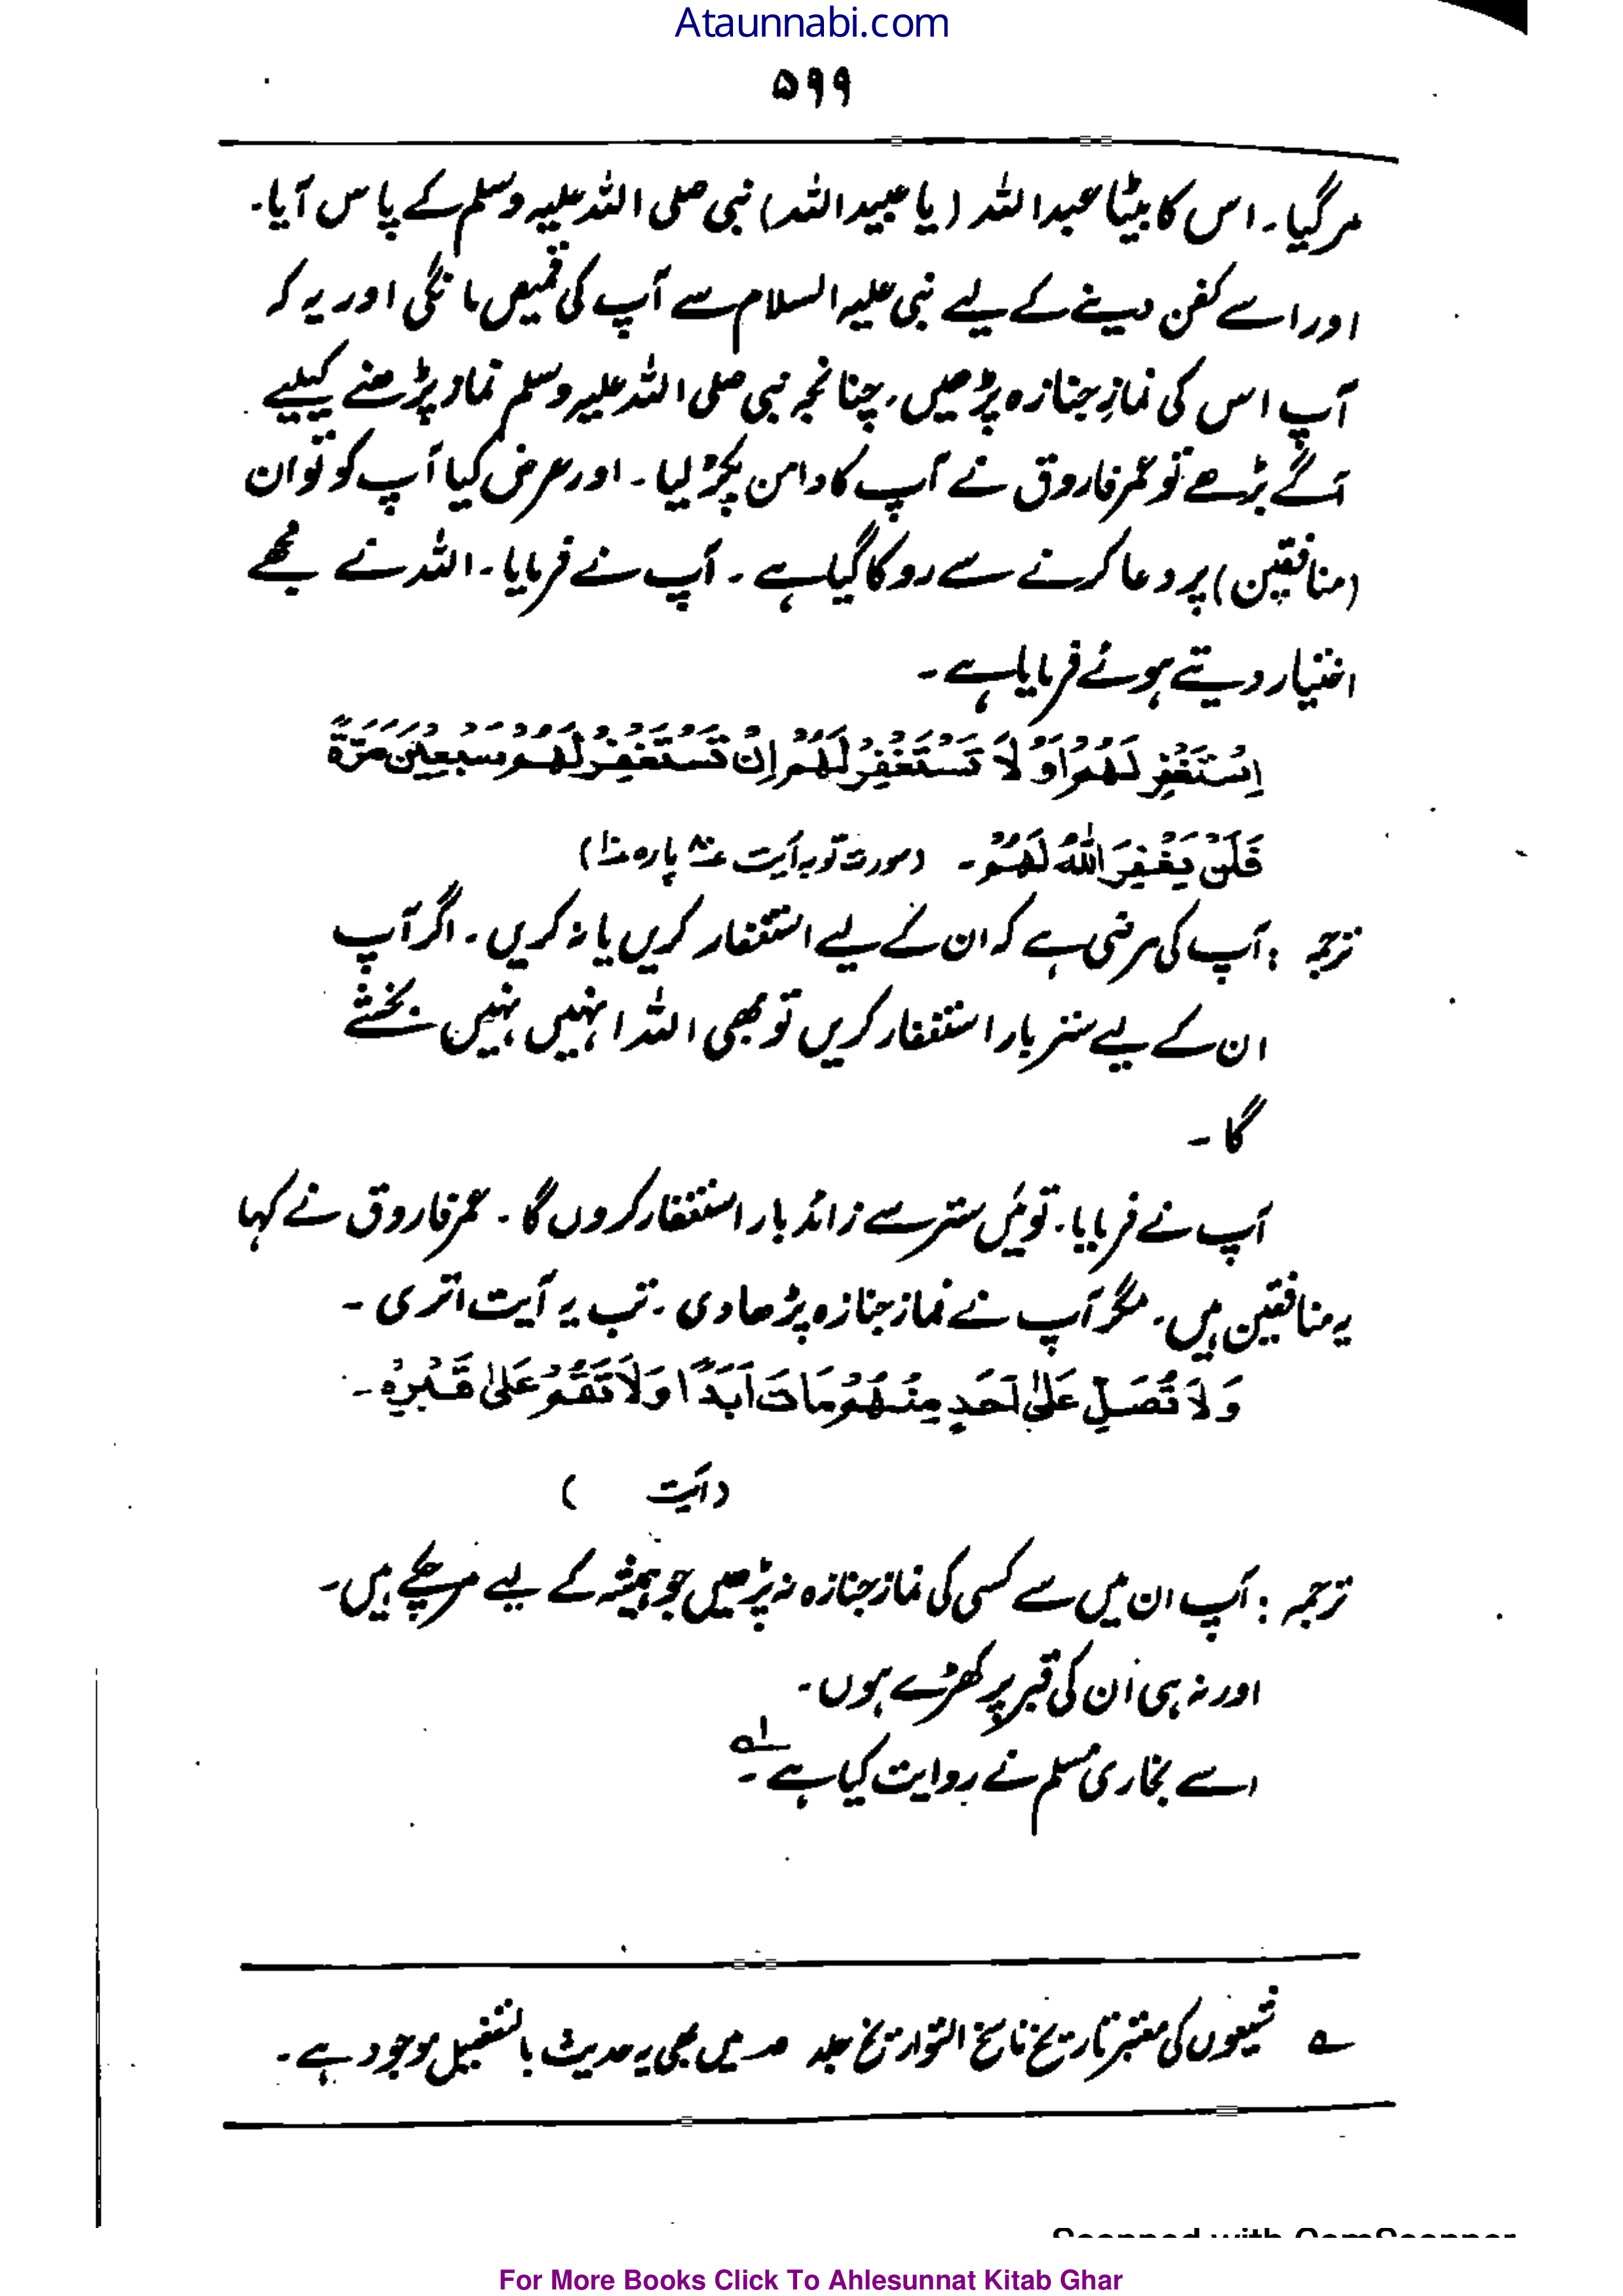 Ataunnabi.com
۵۹۹
مر گیا۔ اس کا بیٹا عبداللہ (یا عبیداللہ) نبی صلی اللہ علیہ وسلم کے پاس آیا۔
اور اسے کفن دینے کے لیے نبی علیہ السلام سے آپ کی قمیص مانگی اور یہ کہ
آپ اس کی نمازِ جنازہ پڑھیں، چنانچہ نبی صلی اللہ علیہ وسلم نماز پڑھنے کیلیے
آگے بڑھے تو عمر فاروق نے آپ کا دامن پکڑ لیا۔ اور عرض کیا آپ کو تو ان
(منافقین) پر دعا کرنے سے روکا گیا ہے۔ آپ نے فرمایا۔ اللہ نے مجھے
اختیار دیتے ہوئے فرمایا ہے۔
اِسْتَغْفِرْ لَهُمْ اَوْ لَا تَسْتَغْفِرْ لَهُمْ اِنْ تَسْتَغْفِرْ لَهُمْ سَبْعِيْنَ مَرَّةً
فَلَنْ يَغْفِرَ اللّٰهُ لَهُمْ۔ (سورت توبہ آیت ۸۰ پارہ ۱۰)
ترجمہ : آپ کی مرضی ہے کہ ان کے لیے استغفار کریں یا نہ کریں۔ اگر آپ
ان کے لیے ستر بار استغفار کریں تو بھی اللہ انہیں نہیں بخشے
گا۔
آپ نے فرمایا۔ تو میں ستر سے زائد بار استغفار کروں گا۔ عمر فاروق نے کہا
یہ منافقین ہیں، مگر آپ نے نماز جنازہ پڑھا دی۔ تب یہ آیت اتری۔
وَلَا تُصَلِّ عَلٰى اَحَدٍ مِنْهُمْ مَاتَ اَبَدًا وَلَا تَقُمْ عَلٰى قَبْرِهٖ۔
(آیت )
ترجمہ : آپ ان میں سے کسی کی نماز جنازہ نہ پڑھیں جو ہمیشہ کے لیے مر چکے ہیں۔
اور نہ ہی ان کی قبر پر کھڑے ہوں۔
اسے بخاری مسلم نے روایت کیا ہے۔ ۱ہ
ے شیعوں کی معتبر تاریخ ناسخ التواریخ جلد میں بھی یہ حدیث بالتفصیل موجود ہے۔
Scanned with CamScanner
For More Books Click To Ahlesunnat Kitab Ghar